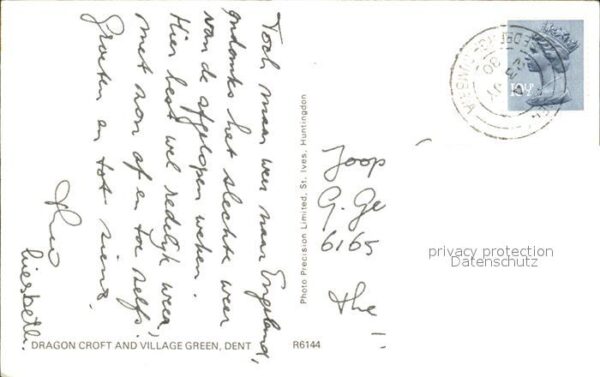 Toch maar weer naar Engeland,
ondanks het slechte weer
van de afgelopen weken.
Hier best wel redelijk weer,
met zon af en toe zelfs.
Groeten en tot ziens,
Liesbeth.
Photo Precision Limited, St. Ives, Huntingdon
Joop
G. Ge
6165
the
privacy protection
Datenschutz
10½P
DRAGON CROFT AND VILLAGE GREEN, DENT R6144